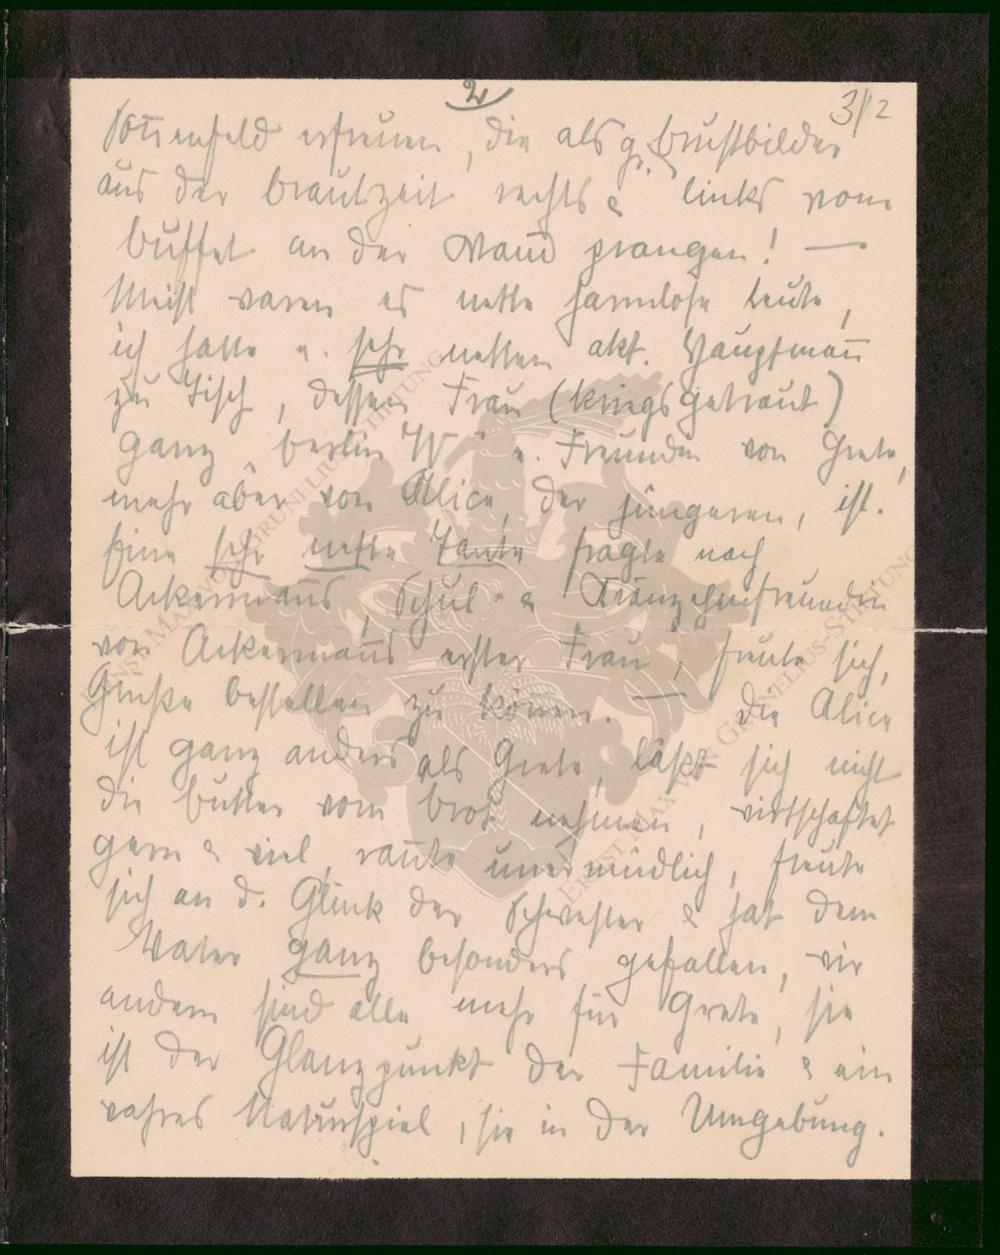 2
3/2
Sonnenfeld erfreuen, die als gr. Brustbilder
aus der Brautzeit rechts & links vom
Buffet an der Wand prangen! —
Meist waren es nette harmlose Leute,
ich hatte e. sehr netten akt. Hauptmann
zu Tisch, dessen Frau (kriegsgetraut)
ganz „Berlin W" e. Freundin von Grete,
mehr aber von Alice, der jüngeren, ist.
Eine sehr nette Tante fragte nach
Ackermanns Schul- & Kränzchenfreundin
von Ackermanns erster Frau, freute sich,
Grüße bestellen zu können. — Die Alice
ist ganz anders als Grete, läßt sich nicht
die Butter vom Brot nehmen, wirtschaftet
gern & viel, raute unermüdlich, freute
sich an d. Glück der Schwester & hat dem
Vater ganz besonders gefallen, wir
andern sind alle mehr für Grete, sie
ist der Glanzpunkt der Familie & ein
wahres Naturspiel, sie in der Umgebung.
ERNST MAX VON GRUNELIUS-STIFTUNG
ERNST MAX VON GRUNELIUS-STIFTUNG